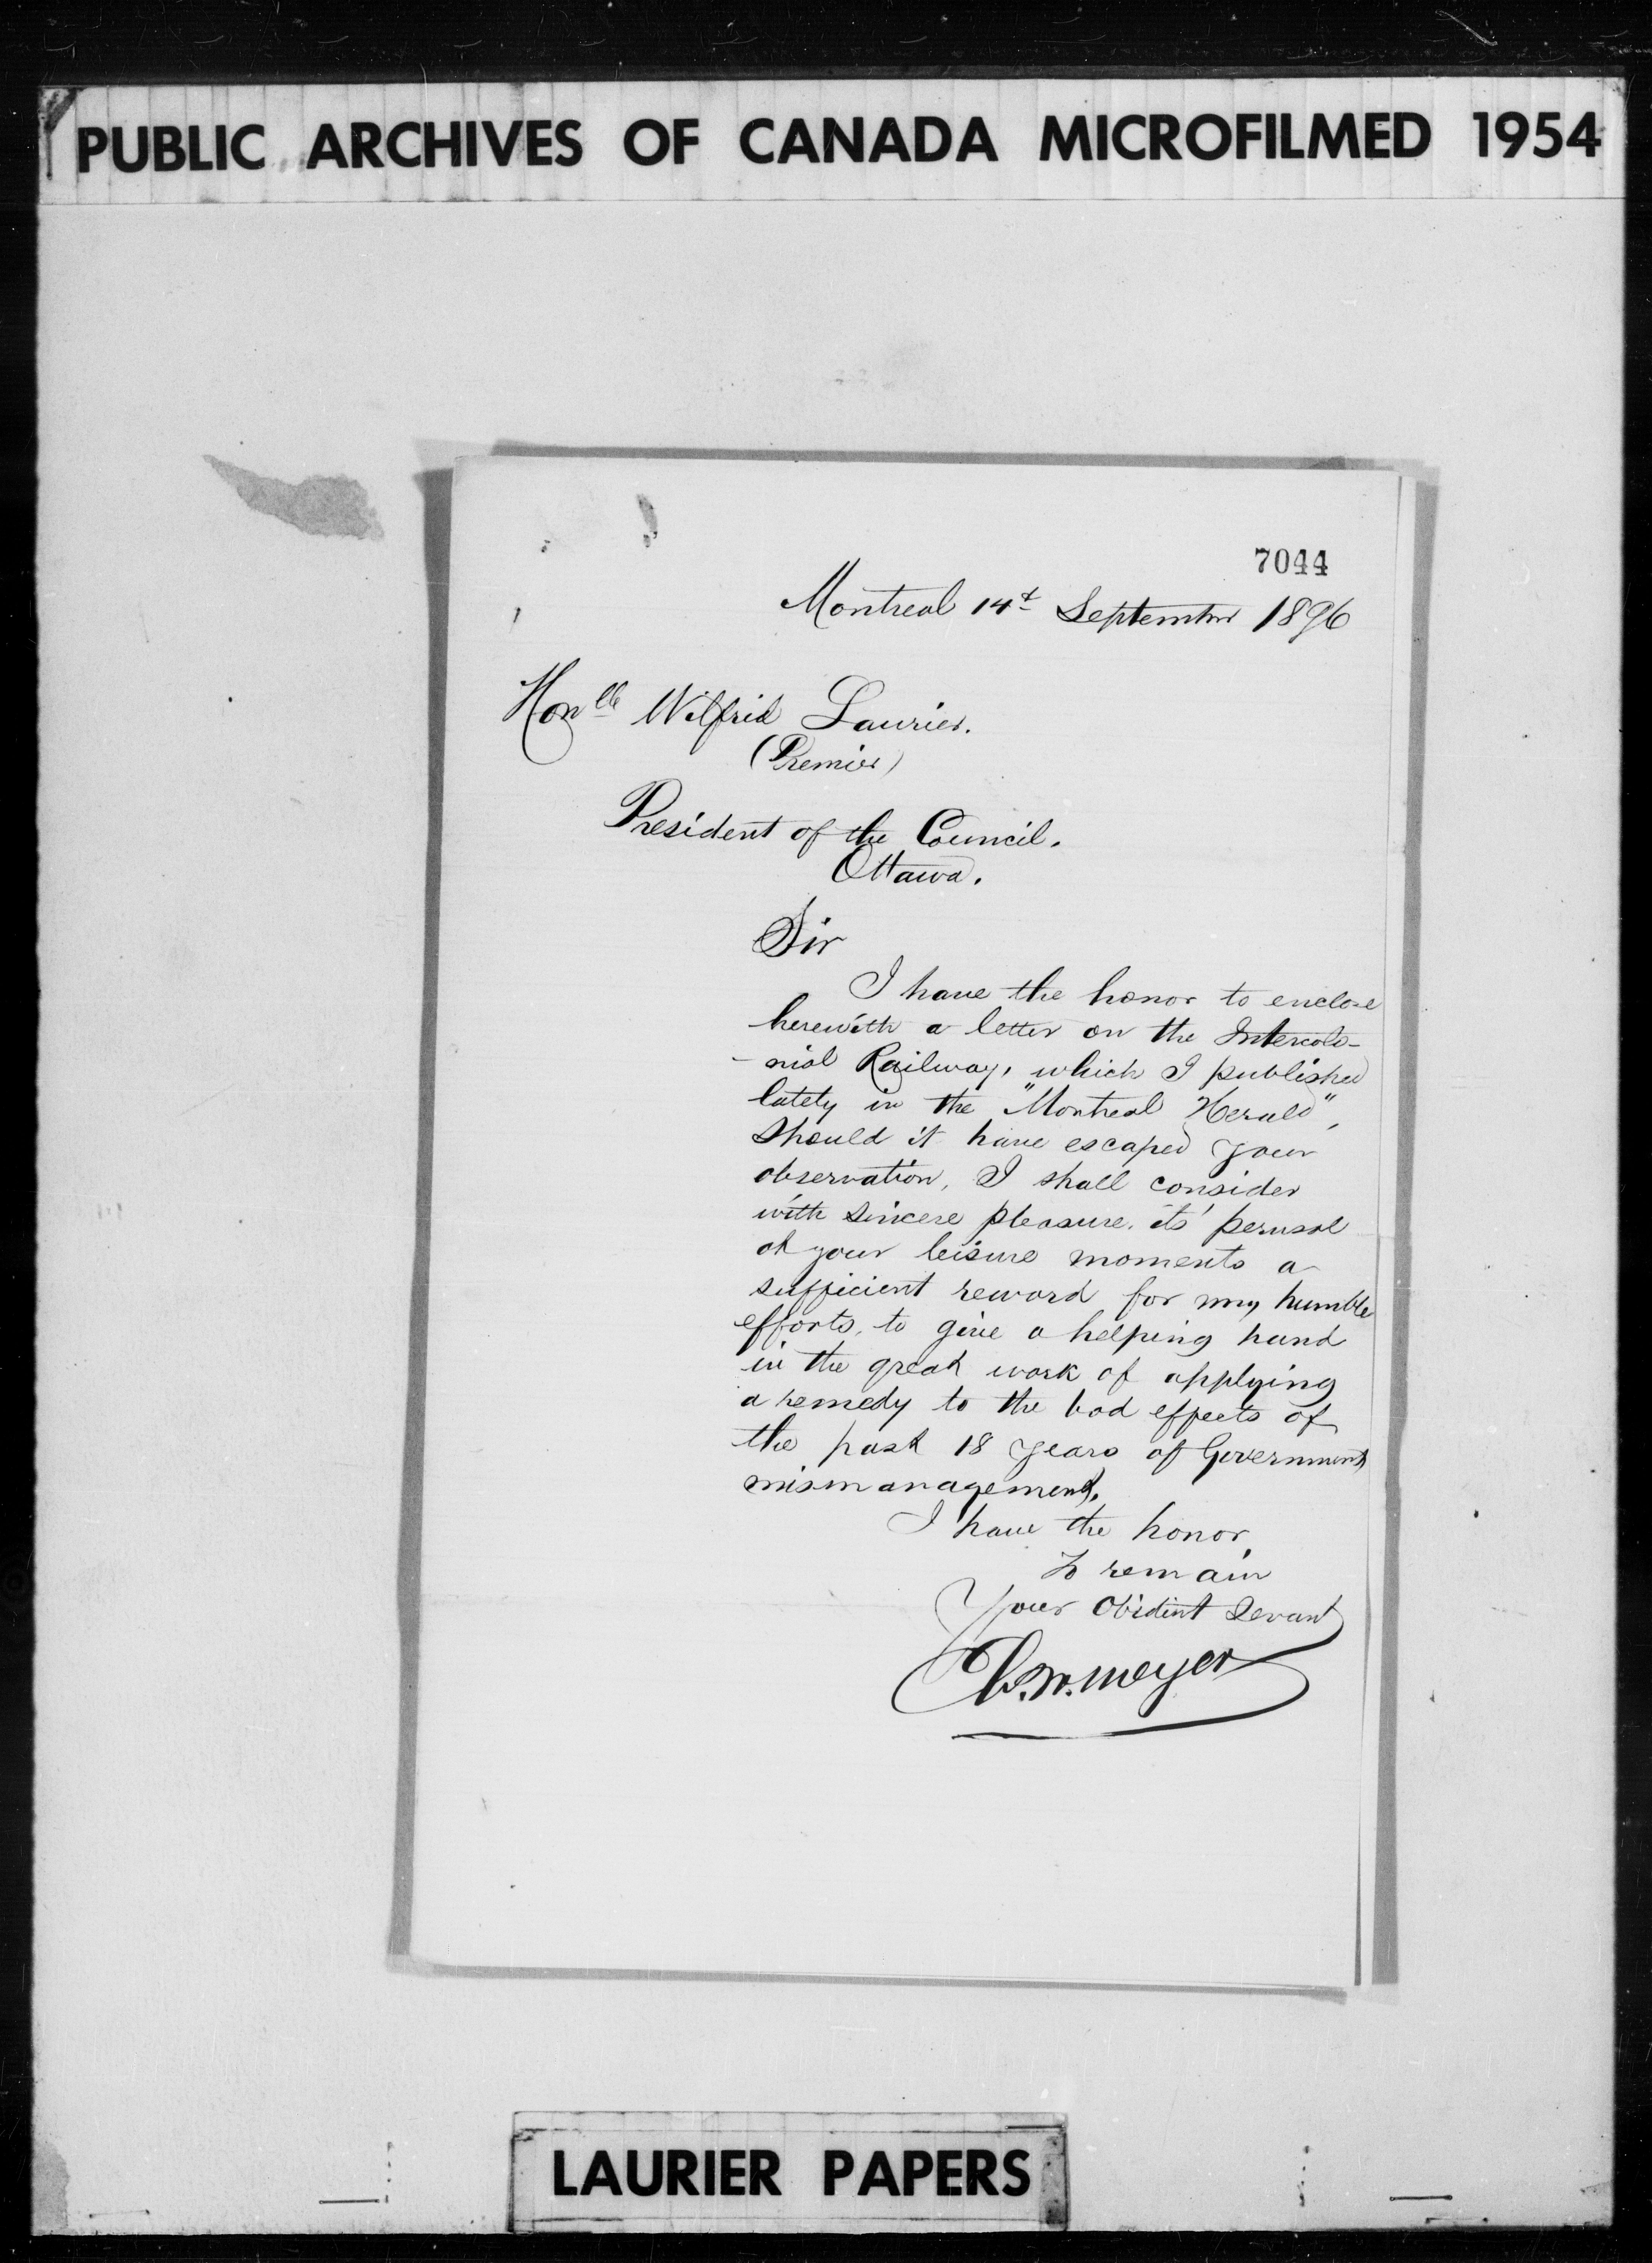 PUBLIC ARCHIVES OF CANADA MICROFILMED 1954
7044
Montreal 14t September 1896
Honble Wilfrid Laurier.
(Premier)
President of the Council.
Ottawa.
Sir
I have the honor to enclose
herewith a letter on the Intercolo-
-nial Railway, which I published
lately in the "Montreal Herald",
Should it have escaped your
observation, I shall consider
with sincere pleasure, its' perusal
at your leisure moments a
sufficient reward for my humble
efforts, to give a helping hand
in the great work of applying
a remedy to the bad effects of
the past 18 years of Government
mismanagement.
I have the honor,
To remain
Your Obidint Servant
meyer
LAURIER PAPERS